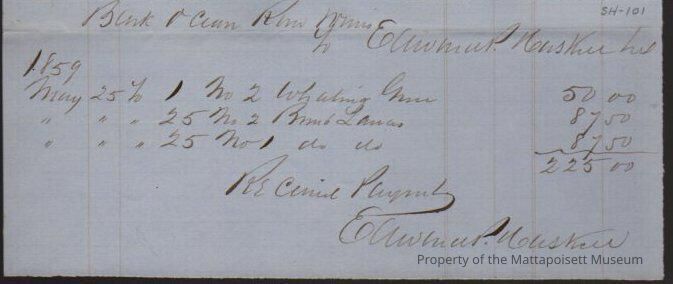 SH-101
Bark Ocean Rover Owners
To Edward P. Haskell Dr
1859
May 25 To 1 No 2 Whaling Gun 50 00
" " " 25 No 2 Bomb Lances 87 50
" " " 25 No 1 do do 87 50
225 00
Received Payment
Edward P. Haskell
Property of the Mattapoisett Museum